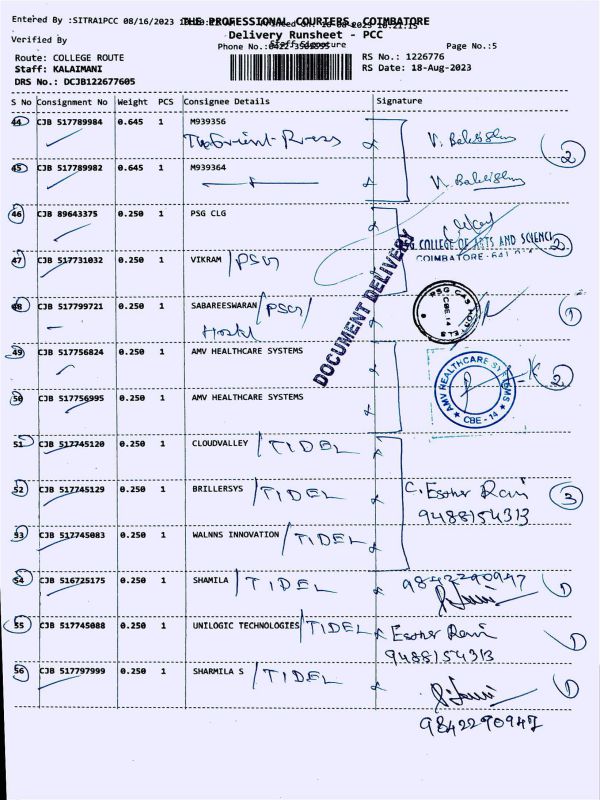 Entered By :SITRA1PCC 08/16/2023
THE PROFESSIONAL COURIERS, COIMBATORE
Delivery Runsheet - PCC
Verified By
Staff Signature
Phone No.:
Page No.:5
Route: COLLEGE ROUTE
RS No.: 1226776
Staff: KALAIMANI
RS Date: 18-Aug-2023
DRS No.: DCJB122677605
S No Consignment No Weight PCS Consignee Details Signature
44 CJB 517789984 0.645 1 M939356
The Orient Press
2
45 CJB 517789982 0.645 1 M939364
46 CJB 89643375 0.250 1 PSG CLG
COLLEGE OF ARTS AND SCIENC
2
COIMBATORE-641 014
47 CJB 517731032 0.250 1 VIKRAM /PSG
48 CJB 517799721 0.250 1 SABAREESWARAN /PSG/
Hostel
PSG CAS HOSTELS
CBE-14
1
DOCUMENT DELIVERY
49 CJB 517756824 0.250 1 AMV HEALTHCARE SYSTEMS
AMV HEALTHCARE SYSTEMS
CBE - 14
2
50 CJB 517756995 0.250 1 AMV HEALTHCARE SYSTEMS
51 CJB 517745120 0.250 1 CLOUDVALLEY /TIDEL
52 CJB 517745129 0.250 1 BRILLERSYS /TIDEL C. Esther Rani 3
9488154313
53 CJB 517745083 0.250 1 WALNNS INNOVATION /TIDEL
54 CJB 516725175 0.250 1 SHAMILA /TIDEL 9842290947 1
55 CJB 517745088 0.250 1 UNILOGIC TECHNOLOGIES /TIDEL Esther Rani 1
9488154313
56 CJB 517797999 0.250 1 SHARMILA S /TIDEL 1
9842290947